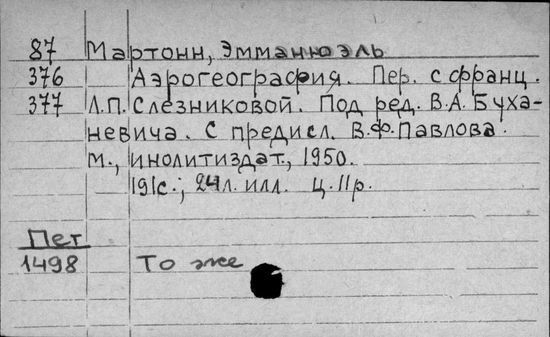 87 Мартонн, Эмманюэль
376 Аэрогеография. Пер. с франц.
377 Л.П. Слезниковой. Под ред. В.А. Буха-
невича. С предисл. В.Ф. Павлова.
М., инолитиздат, 1950.
191с.; 24л. илл. Ц. 11р.
Пет
1498 То же